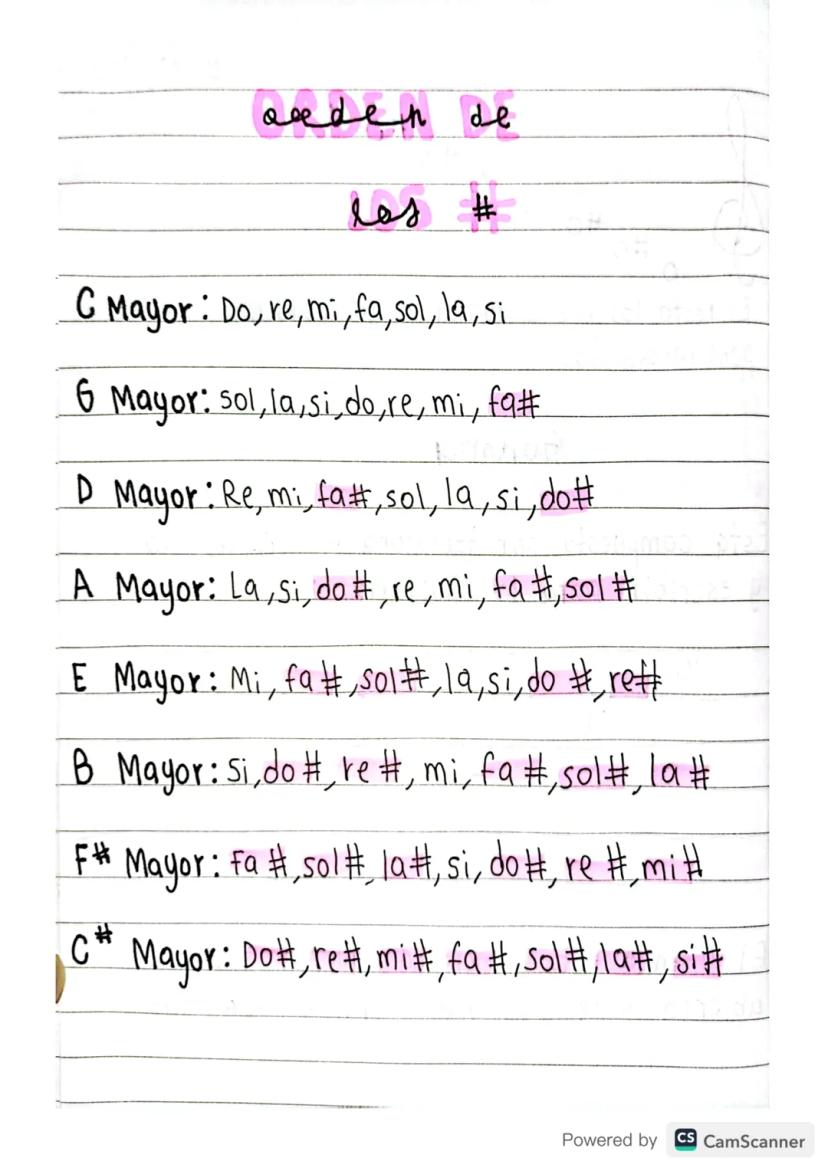 orden de
los #
C Mayor: Do, re, mi, fa, sol, la, si
G Mayor: sol, la, si, do, re, mi, fa#
D Mayor: Re, mi, fa#, sol, la, si, do#
A Mayor: La, si, do#, re, mi, fa#, sol#
E Mayor: Mi, fa#, sol#, la, si, do #, re#
B Mayor: Si, do#, re#, mi, fa#, sol#, la#
F# Mayor: Fa#, sol#, la#, si, do#, re#, mi#
C# Mayor: Do#, re#, mi#, fa#, sol#, la#, si#
Powered by CS CamScanner